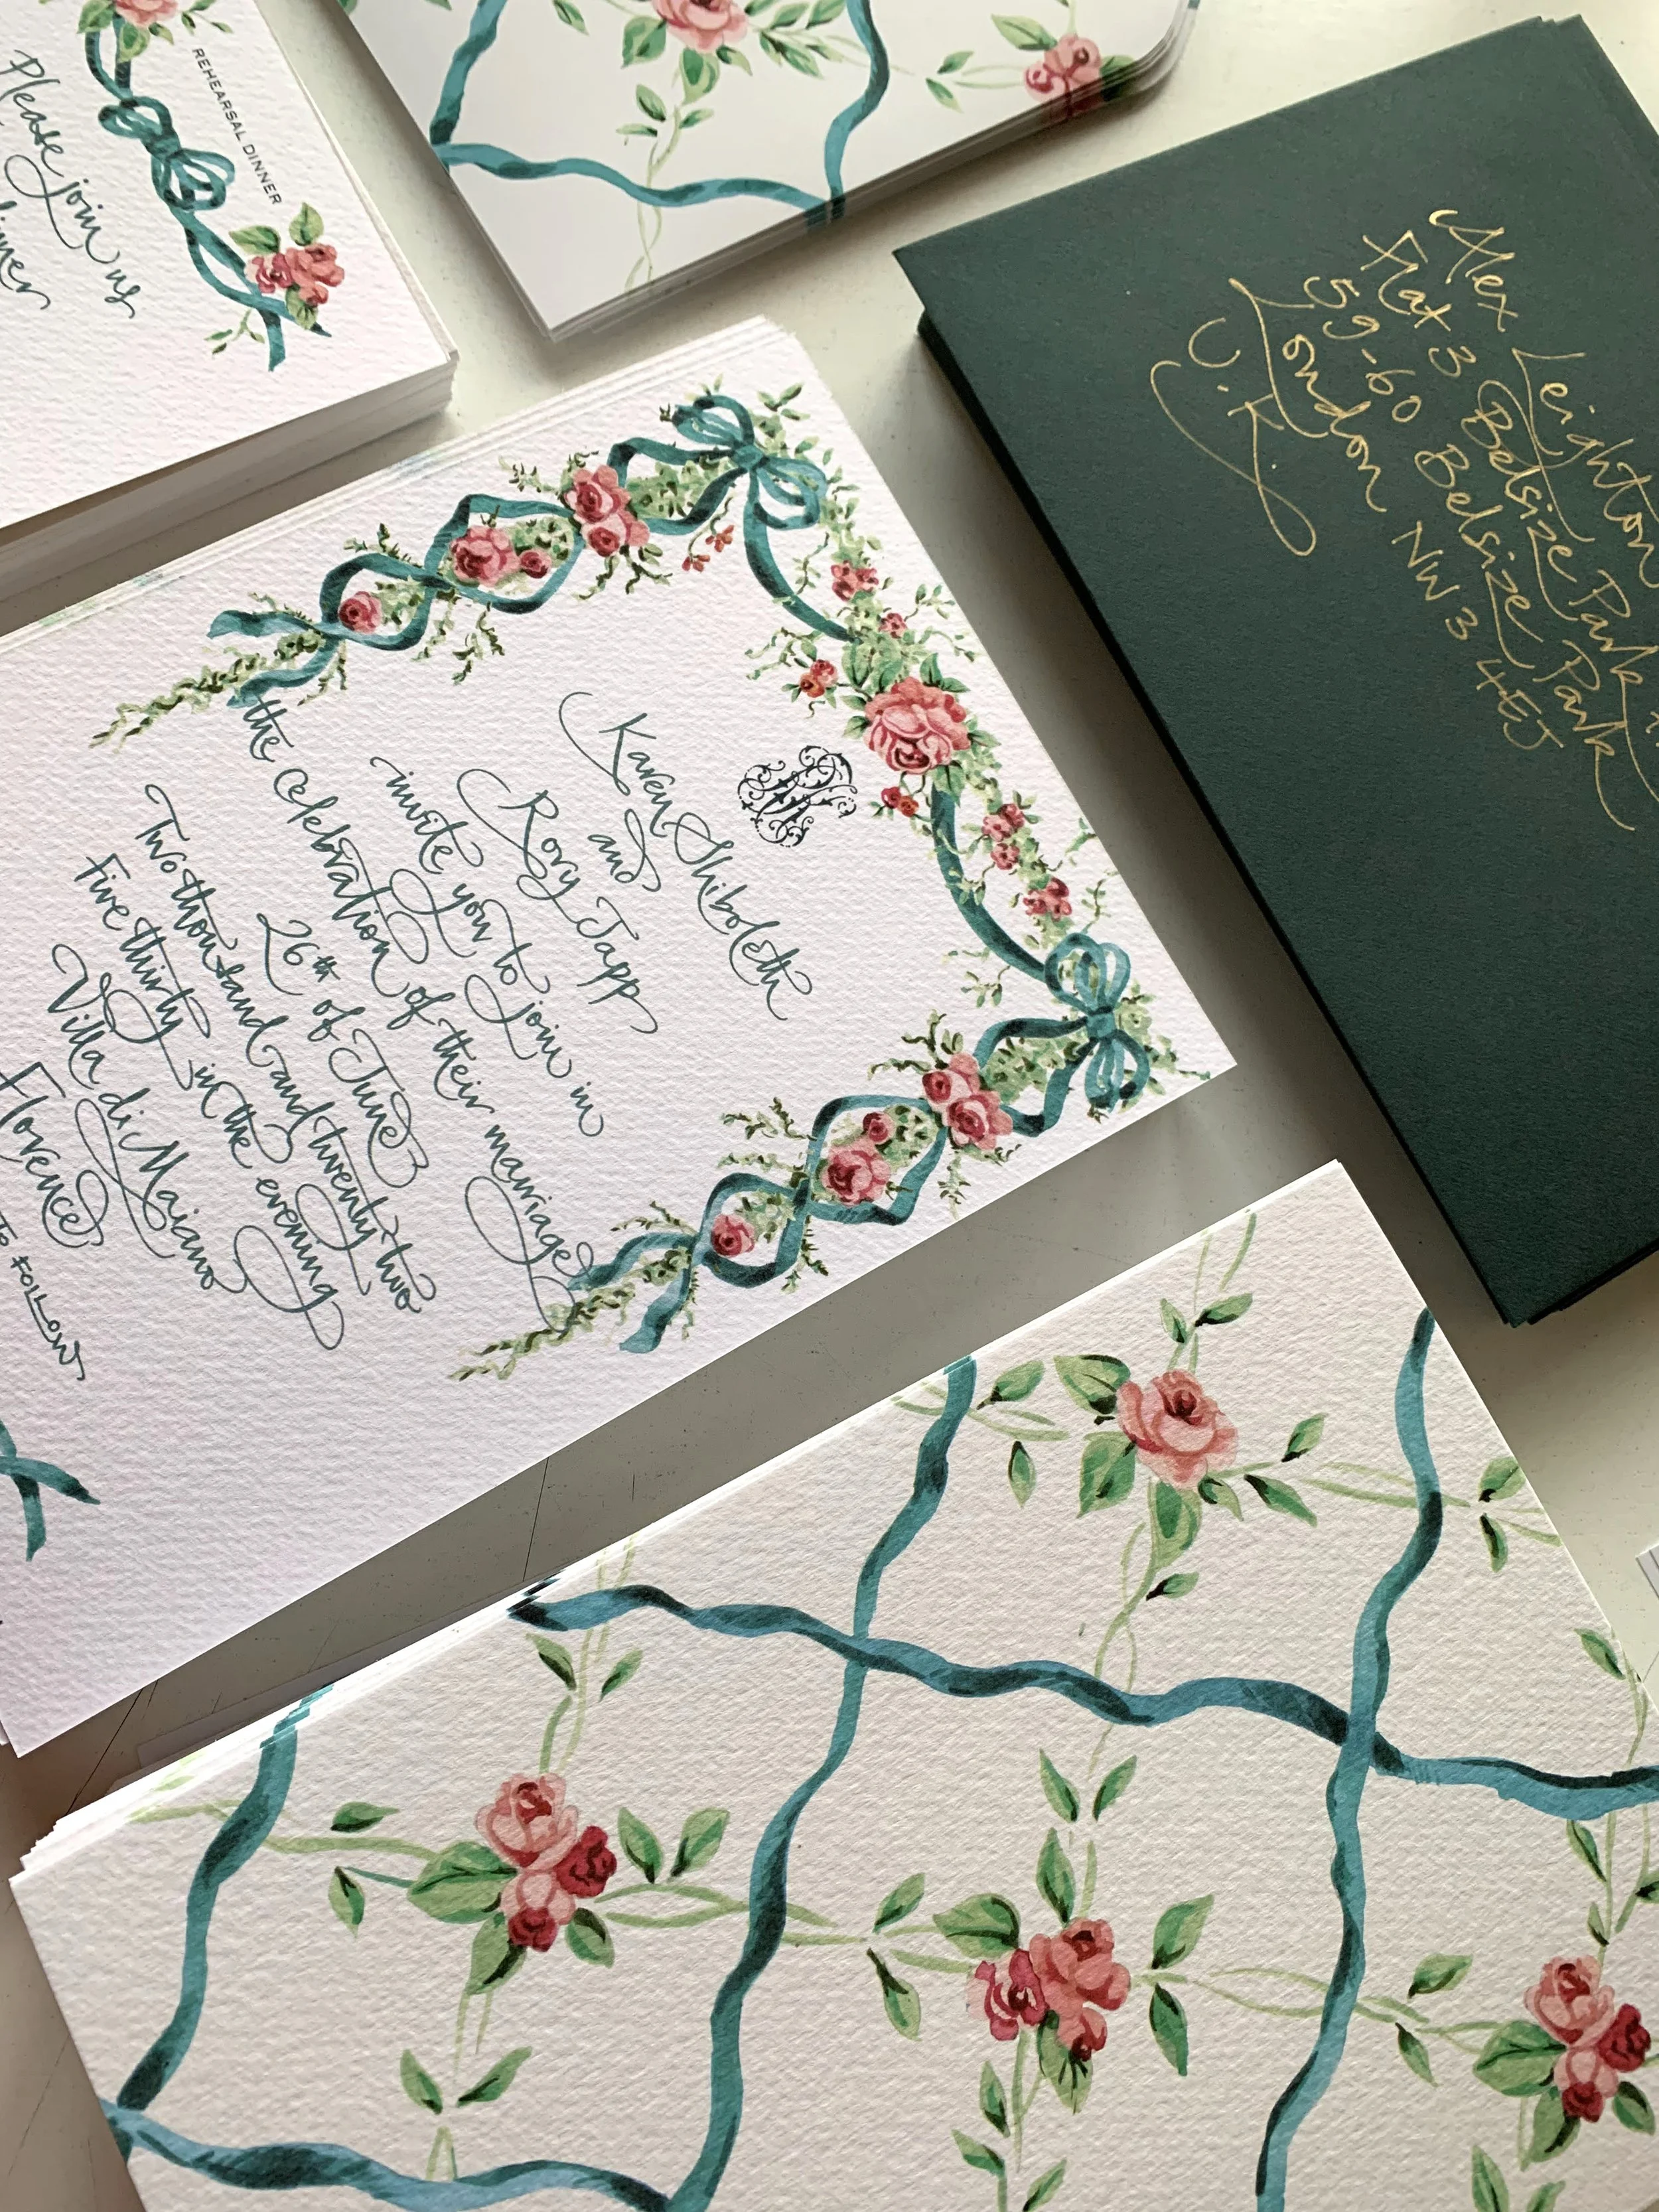 REHEARSAL DINNER
Please join us
Karen Shiboleth
and
Rory Tapp
invite you to join in
the celebration of their marriage
26th of June
Two thousand and twenty two
Five thirty in the evening
Villa di Maiano
Florence
TO FOLLOW
Alex Leighton
Flat 3 Belsize Park
59-60 Belsize Park
London NW3 4EJ
U.K.